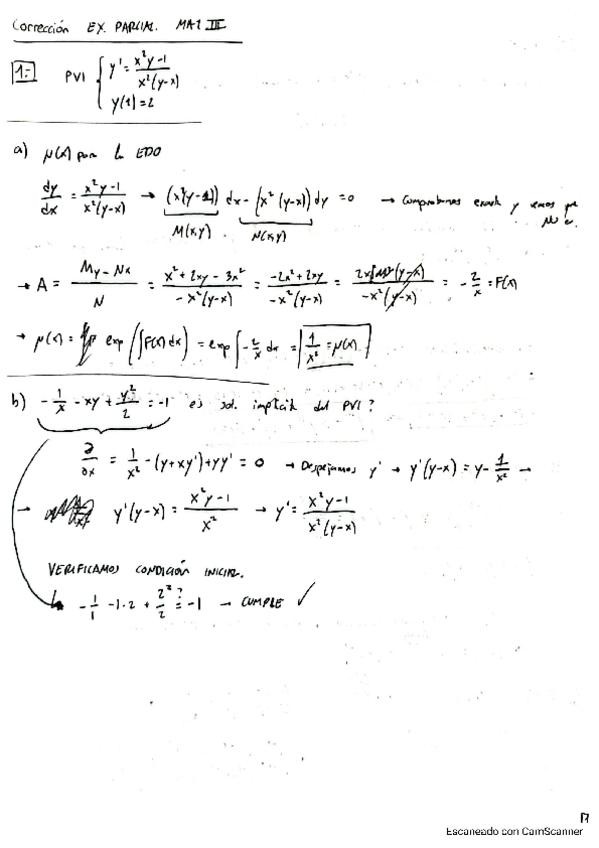 Corrección EX. PARCIAL. MAT III
1.- PVI { y' = x²y-1 / x²(y-x)
y(1)=2
a) μ(x) por la EDO
dy/dx = x²y-1 / x²(y-x) → (x²y-1) dx - (x²(y-x)) dy = 0 → Comprobamos exacta y vemos que no es.
M(x,y) N(x,y)
→ A = My - Nx / N = x² + 2xy - 3x² / -x²(y-x) = -2x² + 2xy / -x²(y-x) = 2x (y-x) / -x²(y-x) = -2/x = F(x)
→ μ(x) = exp(∫F(x)dx) = exp∫-2/x dx = 1/x² = μ(x)
b) -1/x - xy + y²/2 = -1 es sol. implícita del PVI?
∂/∂x = 1/x² - (y+xy') + yy' = 0 → Despejamos y' → y'(y-x) = y - 1/x² →
→ y'(y-x) = x²y-1 / x² → y' = x²y-1 / x²(y-x)
VERIFICAMOS CONDICIÓN INICIAL.
-1/1 - 1·2 + 2²/2 =? -1 → CUMPLE ✓
Escaneado con CamScanner